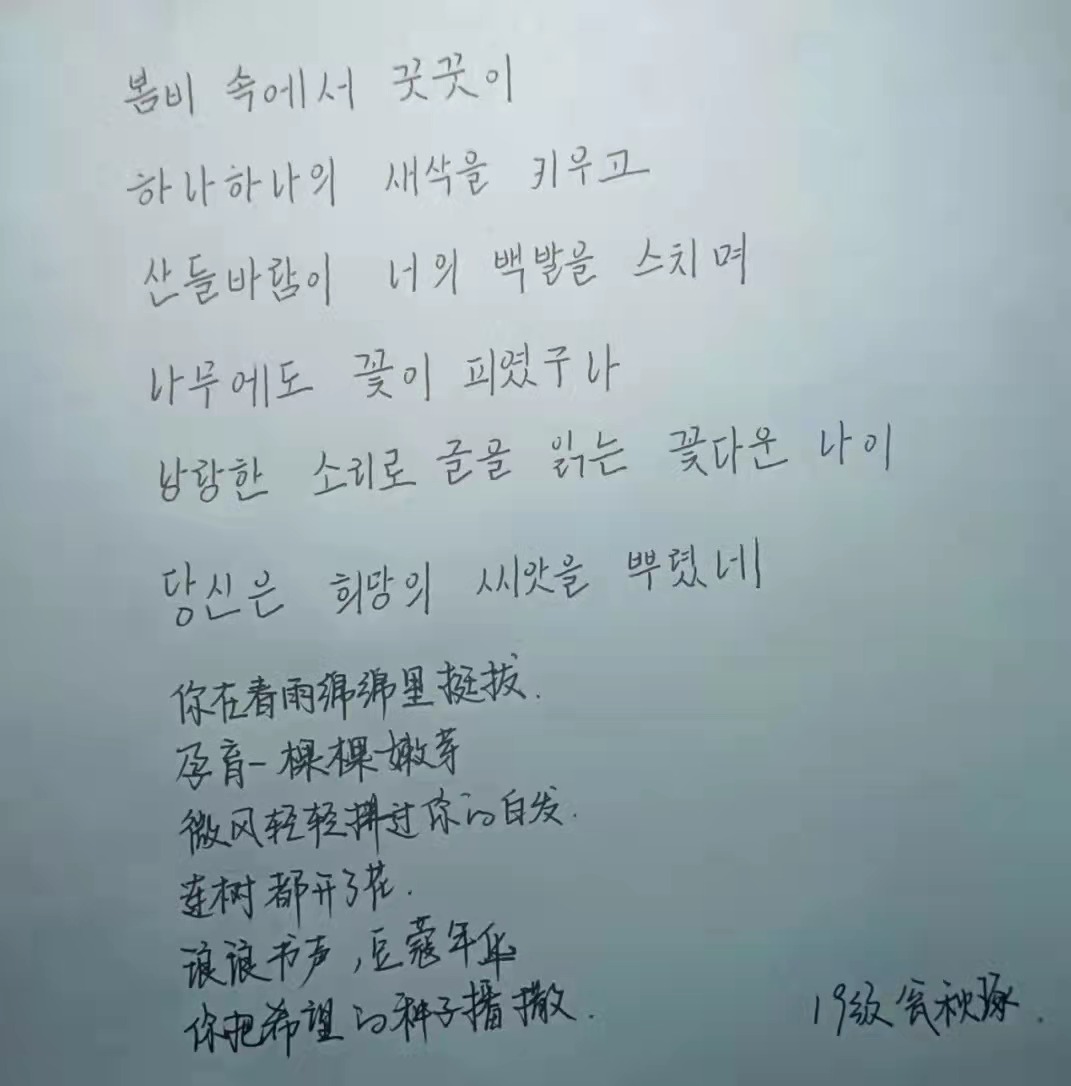 봄비 속에서 꿋꿋이
하나하나의 새삭을 키우고
산들바람이 너의 백발을 스치며
나무에도 꽃이 피였구나
낭랑한 소리로 글을 읽는 꽃다운 나이
당신은 희망의 씨앗을 뿌렸네
你在春雨绵绵里挺拔.
孕育一棵棵嫩芽
微风轻轻拂过你的白发.
连树都开了花.
琅琅书声,豆蔻年华
你把希望的种子播撒.
19级 秋琢.